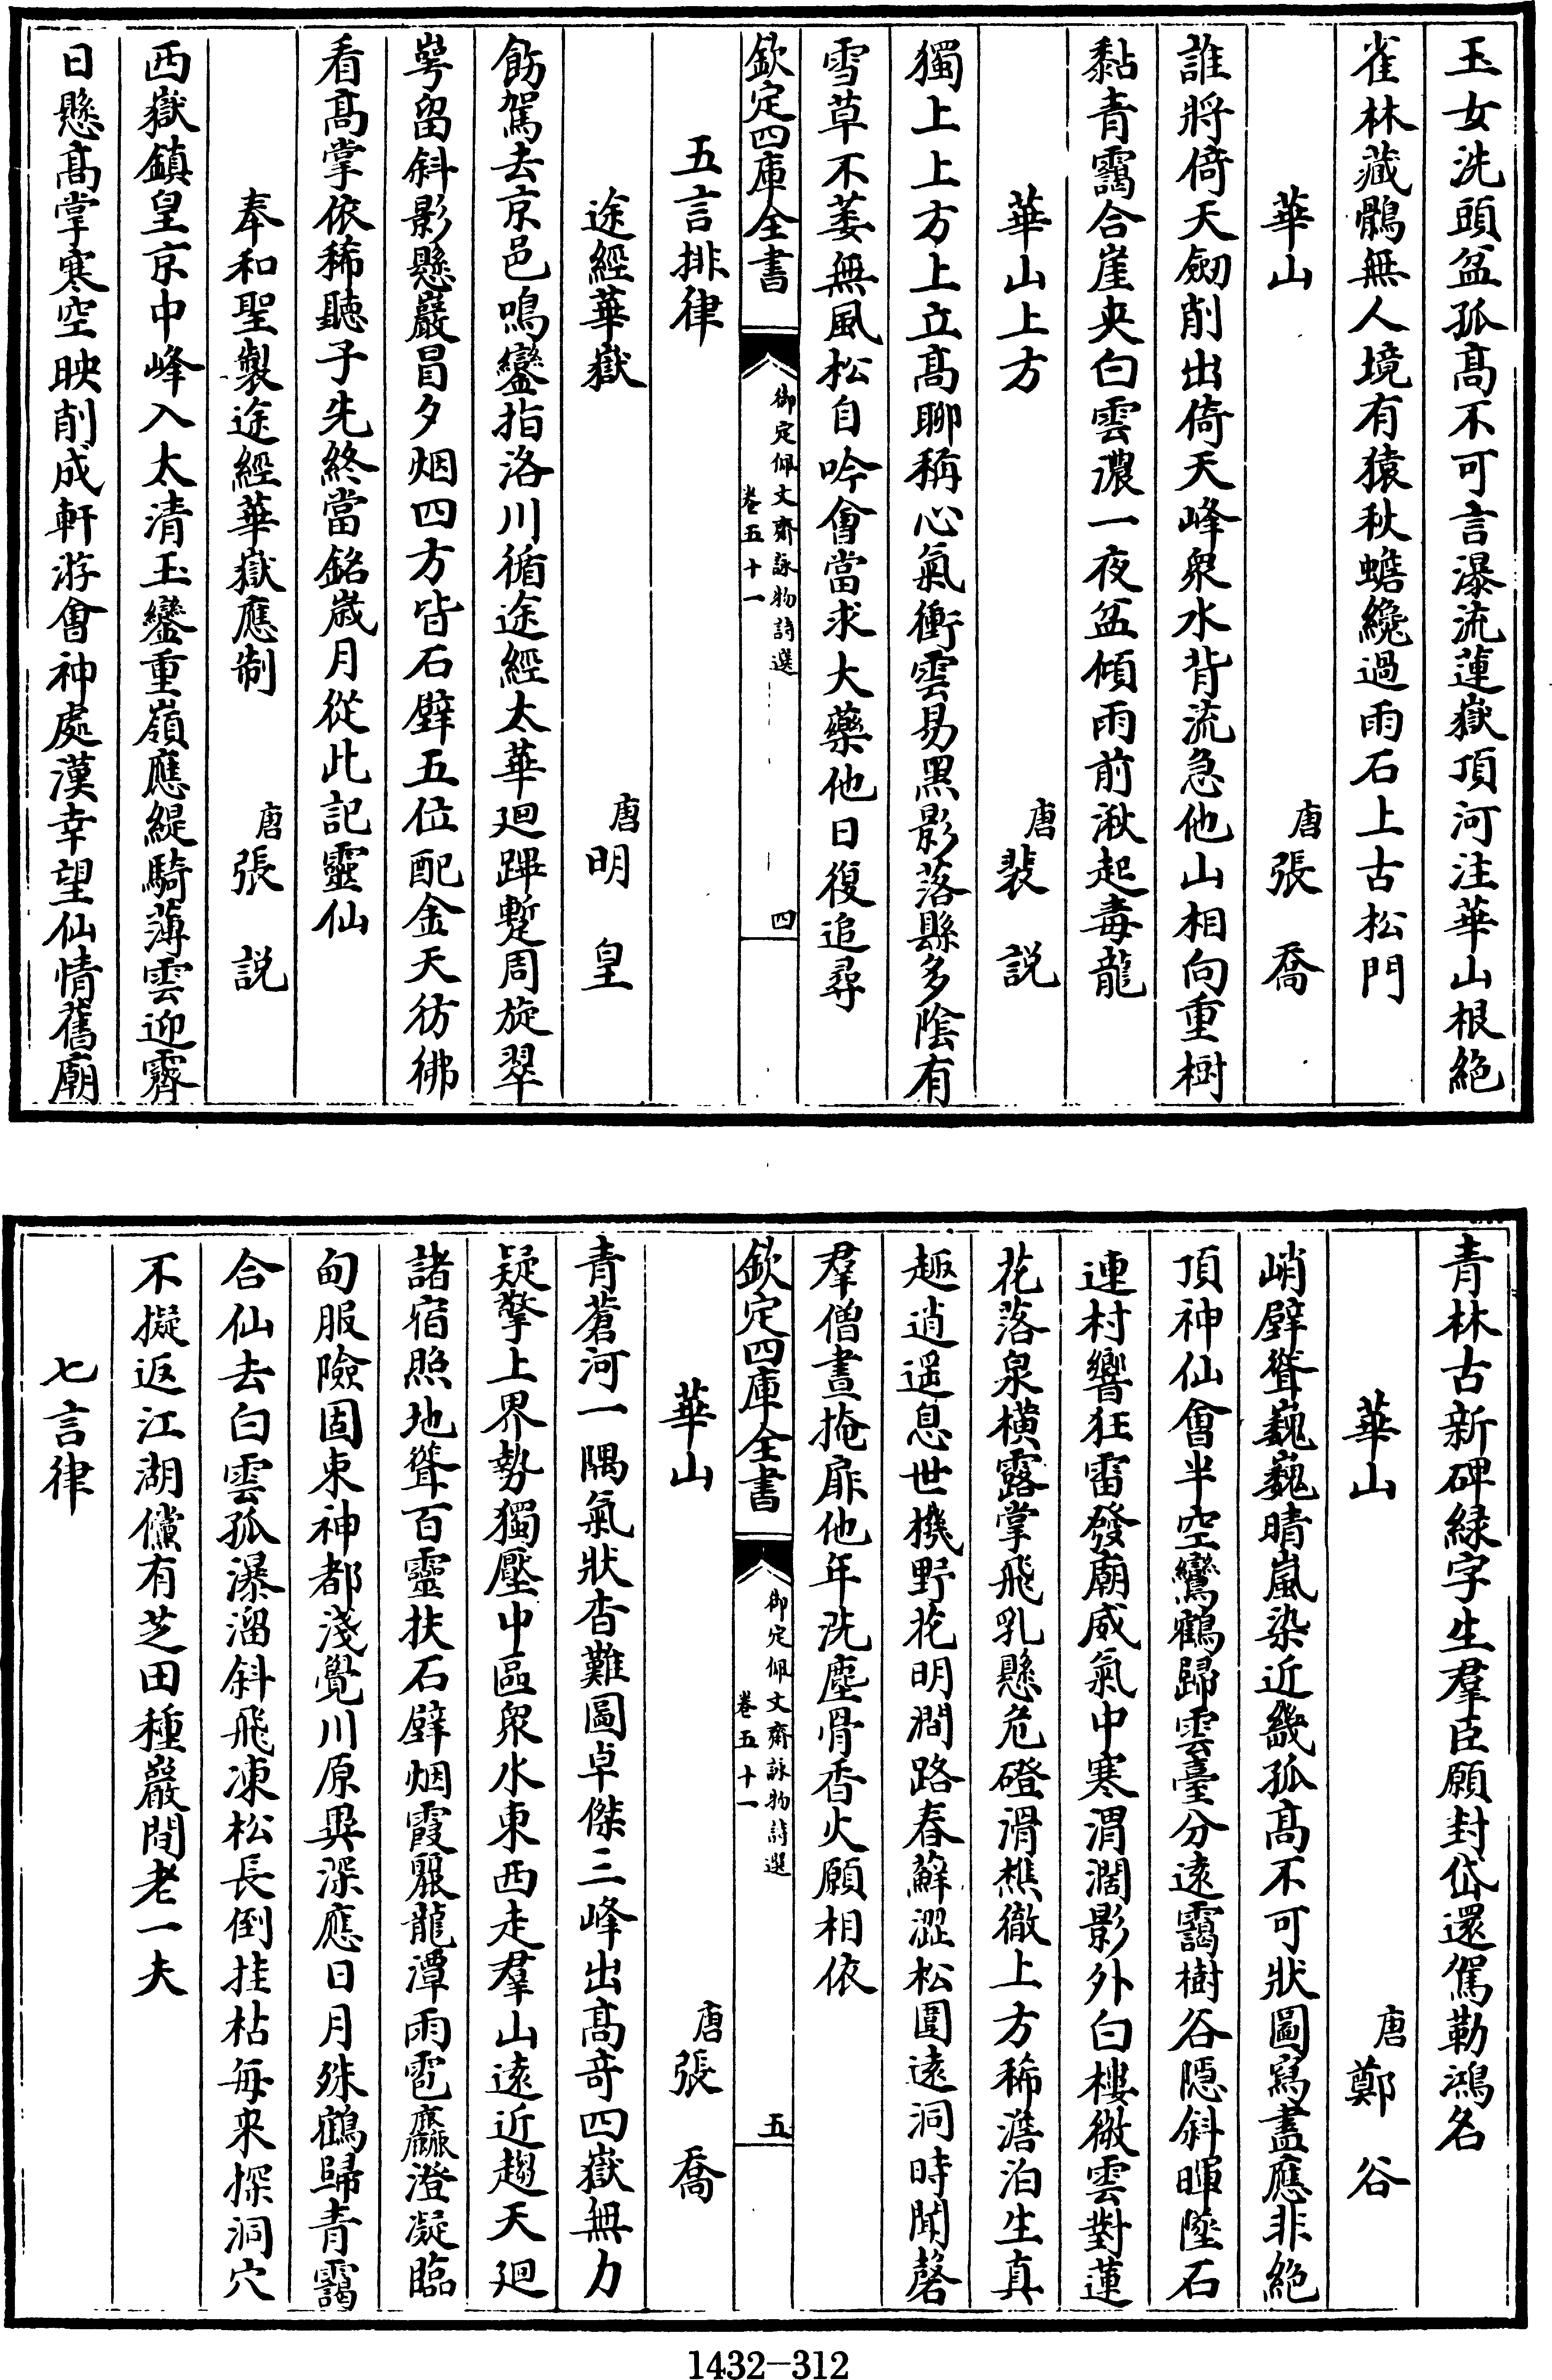 玉女洗頭盆孤髙不可言瀑流蓮嶽頂河注華山根絶
雀林藏鶻無人境有猿秋蟾纔過雨石上古松門
華山 唐張喬
誰將倚天劒削出倚天峰衆水背流急他山相向重樹
黏青靄合崖夾白雲濃一夜盆傾雨前湫起毒龍
華山上方 唐裴説
獨上上方上立髙聊稱心氣衝雲易黒影落縣多隂有
雪草不萎無風松自吟會當求大藥他日復追尋
欽定四庫全書 御定佩文齋詠物詩選 卷五十一 四
五言排律
途經華嶽 唐明皇
飭駕去京邑鳴鑾指洛川循途經太華廻蹕蹔周旋翠
崿留斜影懸巖冒夕烟四方皆石壁五位配金天彷彿
看髙掌依稀聽子先終當銘嵗月從此記靈仙
奉和聖製途經華嶽應制 唐張説
西嶽鎮皇京中峰入太清玉鑾重嶺應緹騎薄雲迎霽
日懸髙掌寒空映削成軒游會神處漢幸望仙情舊廟
青林古新碑緑字生羣臣願封岱還駕勒鴻名
華山 唐鄭谷
峭壁聳巍巍晴嵐染近畿孤髙不可狀圖寫盡應非絶
頂神仙會半空鸞鶴歸雲臺分遠靄樹谷隠斜暉墜石
連村響狂雷發廟威氣中寒渭濶影外白樓微雲對蓮
花落泉横露掌飛乳懸危磴滑樵徹上方稀澹泊生真
趣逍遥息世機野花明澗路春蘚澀松圍遠洞時聞磬
羣僧晝掩扉他年洗塵骨香火願相依
欽定四庫全書 御定佩文齋詠物詩選 卷五十一 五
華山 唐張喬
青蒼河一隅氣狀杳難圖卓傑三峰出髙竒四嶽無力
疑擎上界勢獨壓中區衆水東西走羣山逺近趨天廻
諸宿照地聳百靈扶石壁烟霞麗龍潭雨雹麤澄凝臨
甸服險固束神都淺覺川原異深應日月殊鶴歸青靄
合仙去白雲孤瀑溜斜飛凍松長倒挂枯毎來探洞穴
不擬返江湖儻有芝田種巖間老一夫
七言律
1432-312